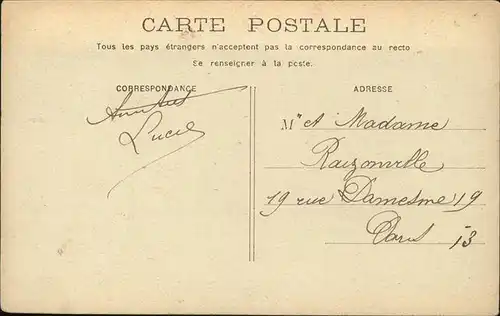 CARTE POSTALE
Tous les pays étrangers n'acceptent pas la correspondance au recto
Se renseigner à la poste.
CORRESPONDANCE
Amitiés
Lucie
ADRESSE
M.r et Madame
Raizonville
19 rue Damesme 19
Paris 13